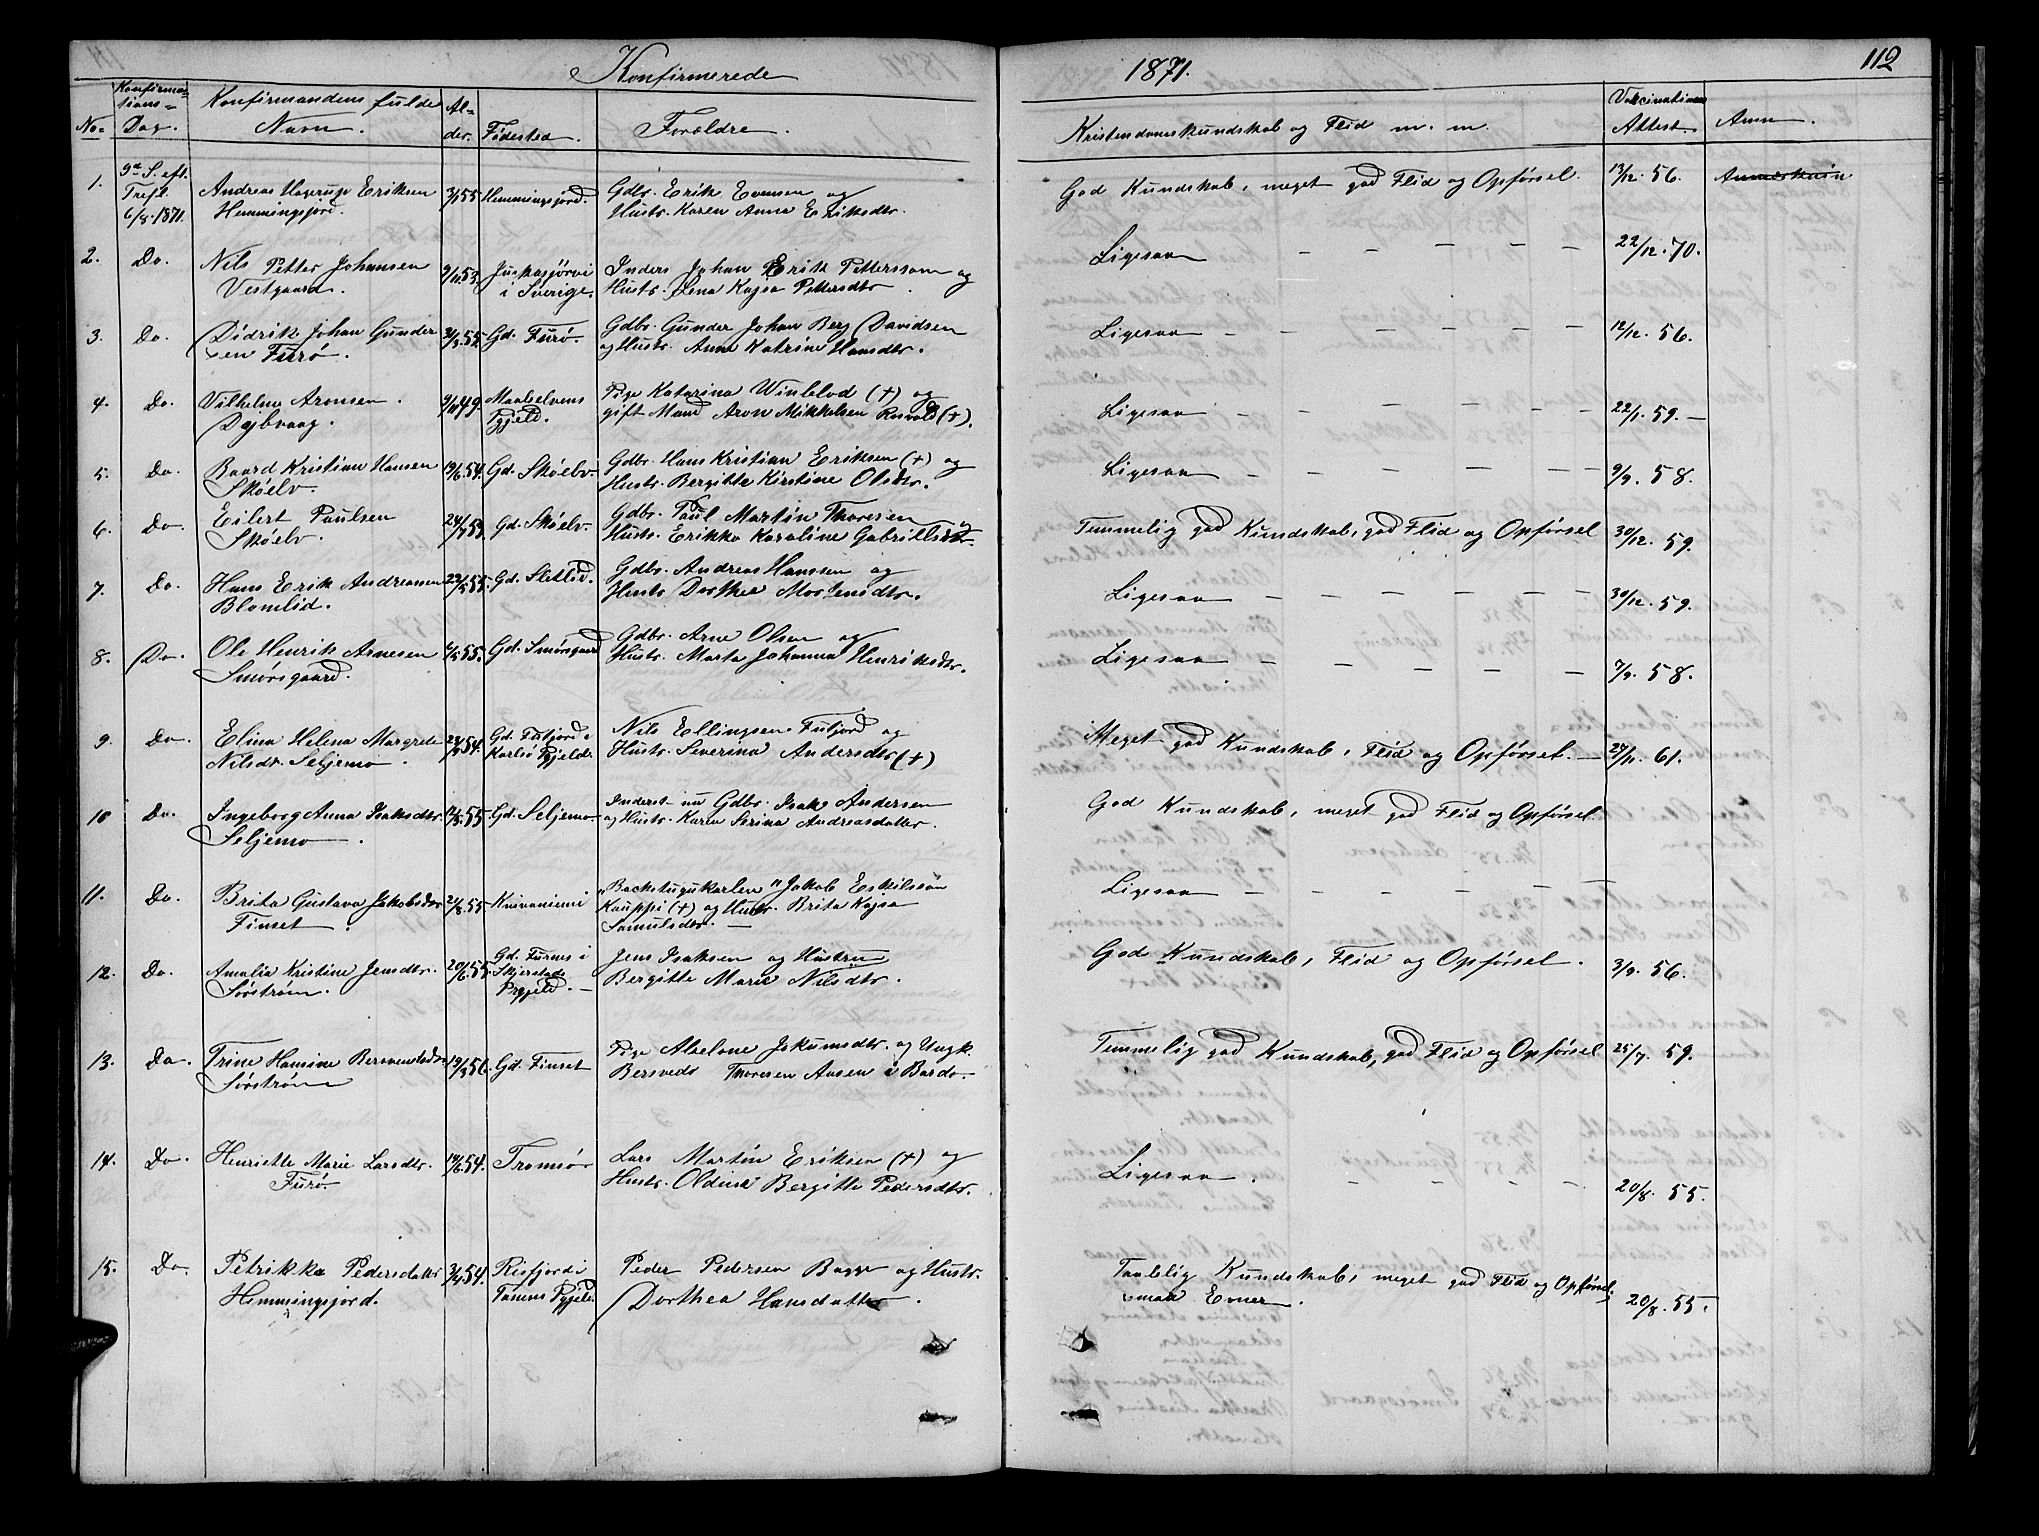 Konfirmerede 1871. 112
No Konfirmations-Dag. Konfirmandens fulde Navn. Alder. Fødested. Forældre. Kristendomskundskab og Flid m. m. Vaccinations Attest. Anm.
1. 9de S. eft. Tref. 6/8 1871. Andreas Hagerup Eriksen Hemmingsfjord. 55 Hemmingsfjord. Gdbr. Erik Evensen og Hustr. Karen Anna Eriksdtr. God Kundskab, meget god Flid og Opførsel. 13/12. 56.
2. Do. Nils Petter Johansen Vestgaard. 9/11 53. Juckasjärvi i Sverige. Inders. Johan Erik Pettersson og Hustr. Lena Kajsa Pettersdtr. Ligesaa — — — — — 22/12. 70.
3. Do. Didrik Johan Gunder sen Furø. 55. Gd. Furø. Gdbr. Gunder Johan Berg Davidsen og Hustr. Anna Katrine Hansdtr. Ligesaa — — — — — 12/12. 56.
4. Do. Vilhelm Aronsen. Dybvaag. 49. Maalselvens Pgjeld. Pige Katarina Winblod (+) og gift Mand Aron Mikkelsen Rosvold (+). Ligesaa — — — — — 22/1. 59. —
5. Do. Baard Kristian Hansen Skøelv. 19/6. 54. Gd. Skøelv. Gdbr. Hans Kristian Eriksen (+) og Hustr. Bergitte Kirstine Olsdtr. Ligesaa — — — — — 9/9. 58.
6. Do. Eilert Paulsen Skøelv. 24/7 53. Gd. Skøelv. Gdbr. Paul Martin Thoresen og Hustr. Erikka Karoline Gabrielsdtr. Temmelig god Kundskab, god Flid og Opførsel 30/12. 59.
7. Do. Hans Erik Andreassen Blomlid. 22/5 55. Gd. Sletlid. Gdbr. Andreas Hanssen og Hustr. Dorthea Mortensdtr. Ligesaa — — — — — 30/12. 59.
8. Do. Ole Henrik Arnesen Smørsgaard. 55. Gd. Smørsgaard Gdbr. Arne Olsen og Hustr. Marta Johanna Henriksdtr. Ligesaa — — — — — 7/9. 58.
9. Do. Elina Helena Margrete Nilsdtr. Seljemo. 54. Gd. Futjord i Karlsø Pgjeld. Nils Ellingsen Futjord og Hustr. Severina Andersdtr (+) Meget god Kundskab, Flid og Opførsel. — 61.
10 Do. Ingeborg Anna Isaksdtr. Seljemo. 55. Gd. Seljemo. Inderst nu Gdbr. Isak Andersen og Hustr. Karen Serina Andreasdatter. God Kundskab, meget god Flid og Opførsel
11. Do. Brita Gustava Jakobsdtr Finset. 55 Kuivaniemi "Backstugukarlen" Jakob Eskilsson Kauppi (+) og Hustr. Brita Kajsa Samuelsdtr. — Ligesaa — — — — —
12. Do. Amalie Kristine Jensdtr. Sørstrøm. 20/6 55. Gd. Furnes i Skjerstads Prgjeld. — Jens Isaksen og Hustru Bergitte Marie Nilsdtr. God Kundskab, Flid og Opførsel. 3/9. 56.
13. Do. Trine Hansine Bersvendsdtr Sørstrøm 56. Gd. Finset Pige Alselone Jokumsdtr. og Ungk. Bersveds Thoresen Aasen i Bardo. Temmelig god Kundskab, god Flid og Opførsel 25/7. 59.
14. Do. Henriette Marie Larsdtr. Furø. 19/6. 54. Tromsø Lars Martin Eriksen (+) og Hustr. Oldine Bergitte Pedersdtr. Ligesaa. — — — — 20/8. 55.
15. Do. Petrikka Pedersdatter Hemmingsfjord. 54. Risfjord i Tanens Pgjeld. Peder Pedersen Bagge og Hustr. Dorthea Hansdatter. Taalelig Kundskab, meget god Flid og Opførsel, smaa Evner. 20/8. 55.